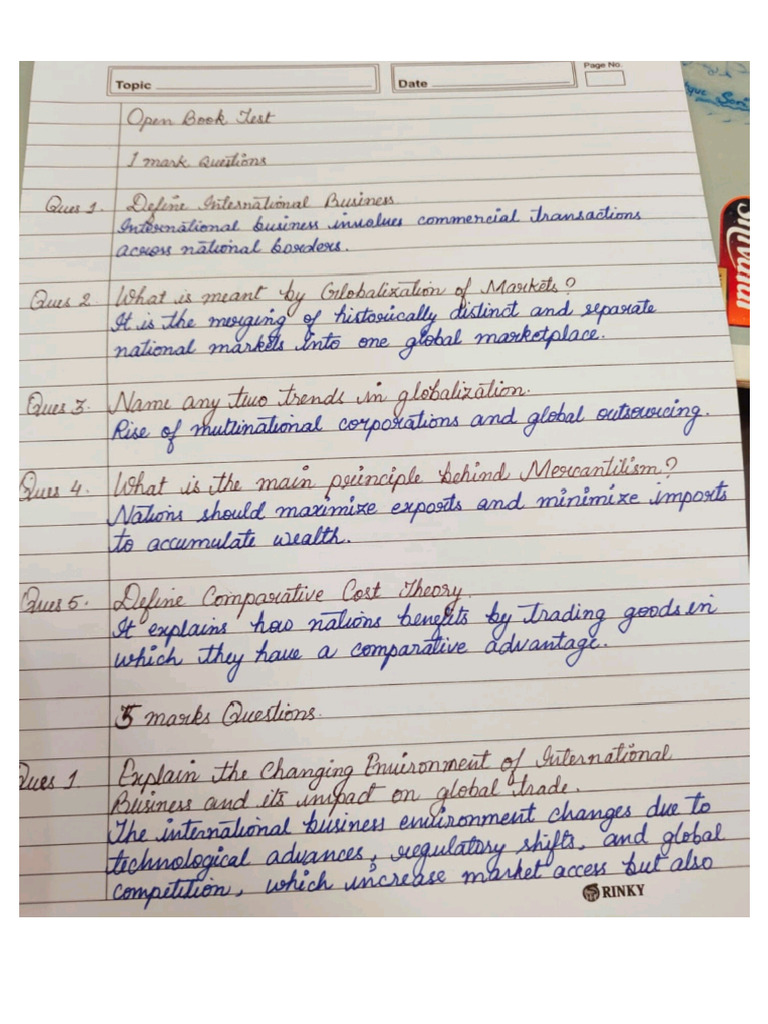 Topic
Date
Page No.
Open Book Test
1 mark Questions
Ques 1. Define International Business.
International business involves commercial transactions
across national borders.
Ques 2. What is meant by Globalization of Markets?
It is the merging of historically distinct and separate
national markets into one global marketplace.
Ques 3. Name any two trends in globalization.
Rise of multinational corporations and global outsourcing.
Ques 4. What is the main principle behind Mercantilism?
Nations should maximize exports and minimize imports
to accumulate wealth.
Ques 5. Define Comparative Cost Theory.
It explains how nations benefits by trading goods in
which they have a comparative advantage.
5 marks Questions.
Ques 1. Explain the Changing Environment of International
Business and its impact on global trade.
The international business environment changes due to
technological advances, regulatory shifts, and global
competition, which increase market access but also
RINKY